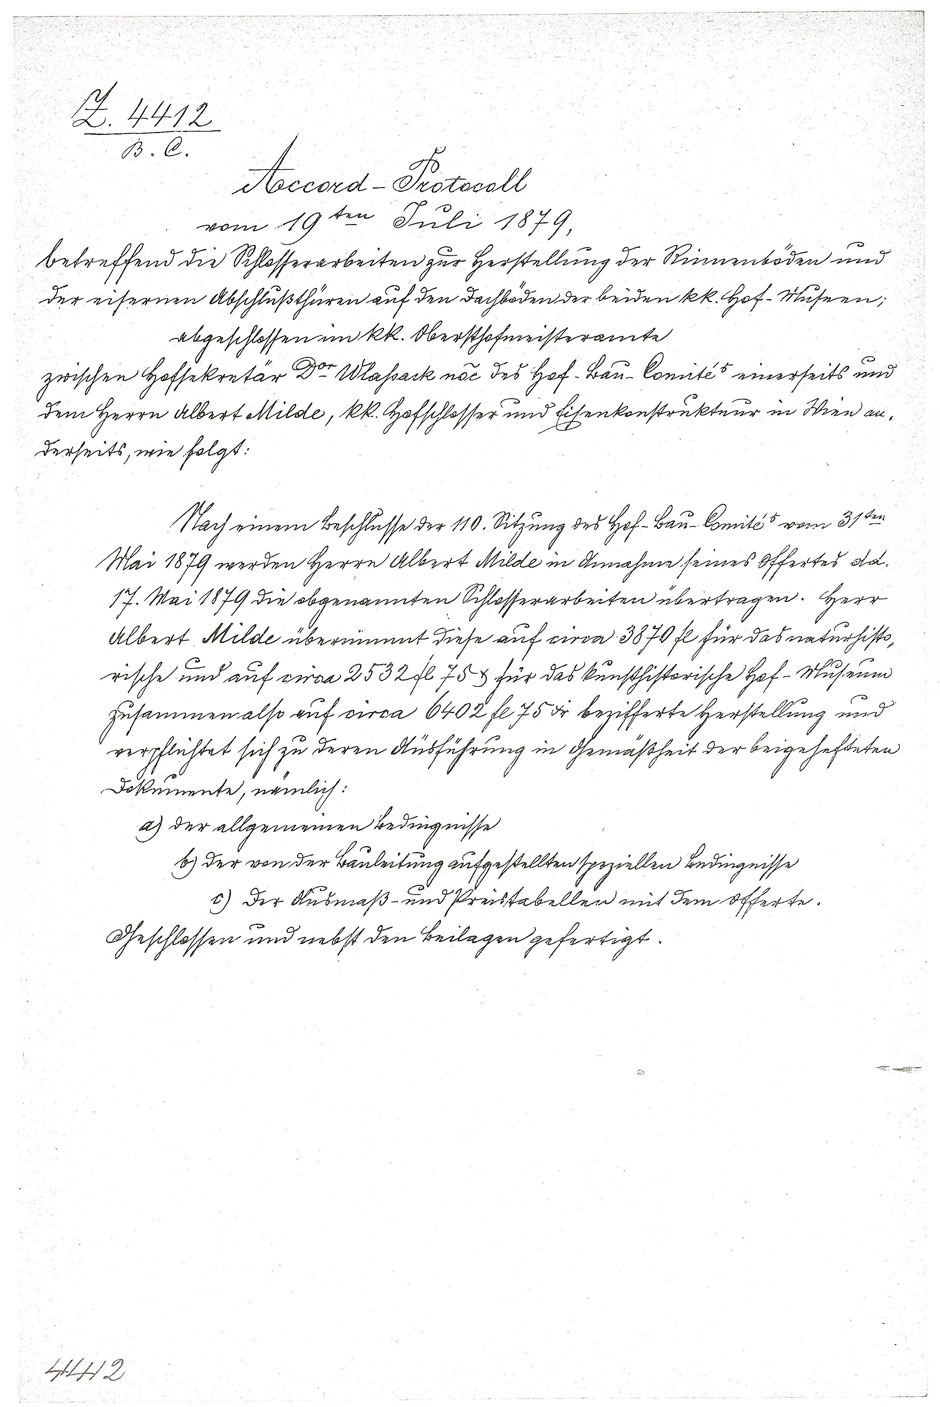 Z. 4412
B. C.
Accord-Protocoll
vom 19ten Juli 1879,
betreffend die Schlosserarbeiten zur Herstellung der Rinnenböden und
der eisernen Abschlußthüren auf den Dachböden der beiden kk. Hof-Museen;
abgeschlossen im kk. Obersthofmeisteramte
zwischen Hofsekretär Dor Wlassack nōē des Hof-Bau-Comités einerseits und
dem Herrn Albert Milde, kk. Hofschlosser und Eisenkonstrukteur in Wien an,
derseits, wie folgt:
Nach einem Beschlusse der 110. Sitzung des Hof-Bau-Comités vom 31ten
Mai 1879 werden Herrn Albert Milde in Annahme seines Offertes dd.
17. Mai 1879 die obgenannten Schlosserarbeiten übertragen. Herr
Albert Milde übernimmt diese auf circa 3870 fl für das naturhisto,
rische und auf circa 2532 fl 75 für das kunsthistorische Hof-Museum
zusammen also auf circa 6402 fl 75 bezifferte Herstellung und
verpflichtet sich zu deren Ausführung in Gemäßheit der beigehefteten
Dokumente, nämlich:
a) der allgemeinen Bedingnisse
b) der von der Bauleitung aufgestellten speziellen Bedingnisse
c) der Ausmaß- und Preistabellen mit dem Offerte.
Geschlossen und nebst den Beilagen gefertigt.
4412